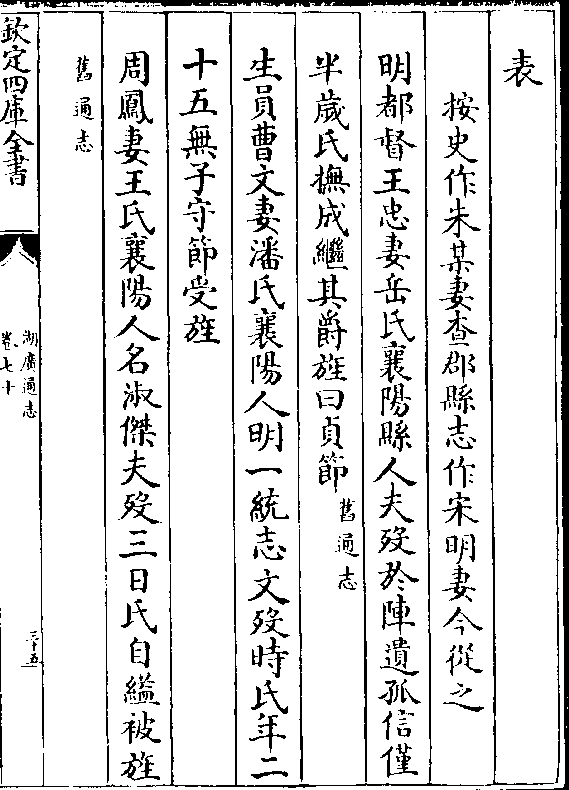 表
按史作朱某妻查郡縣志作宋明妻今從之
明都督王忠妻岳氏襄陽縣人夫歿於陣遺孤信僅
半歲氏撫成繼其爵旌曰貞節舊通志
生員曹文妻潘氏襄陽人明一統志文歿時氏年二
十五無子守節受旌
周鳳妻王氏襄陽人名淑傑夫歿三日氏自縊被旌
舊通志
欽定四庫全書
湖廣通志
卷七十
三十五